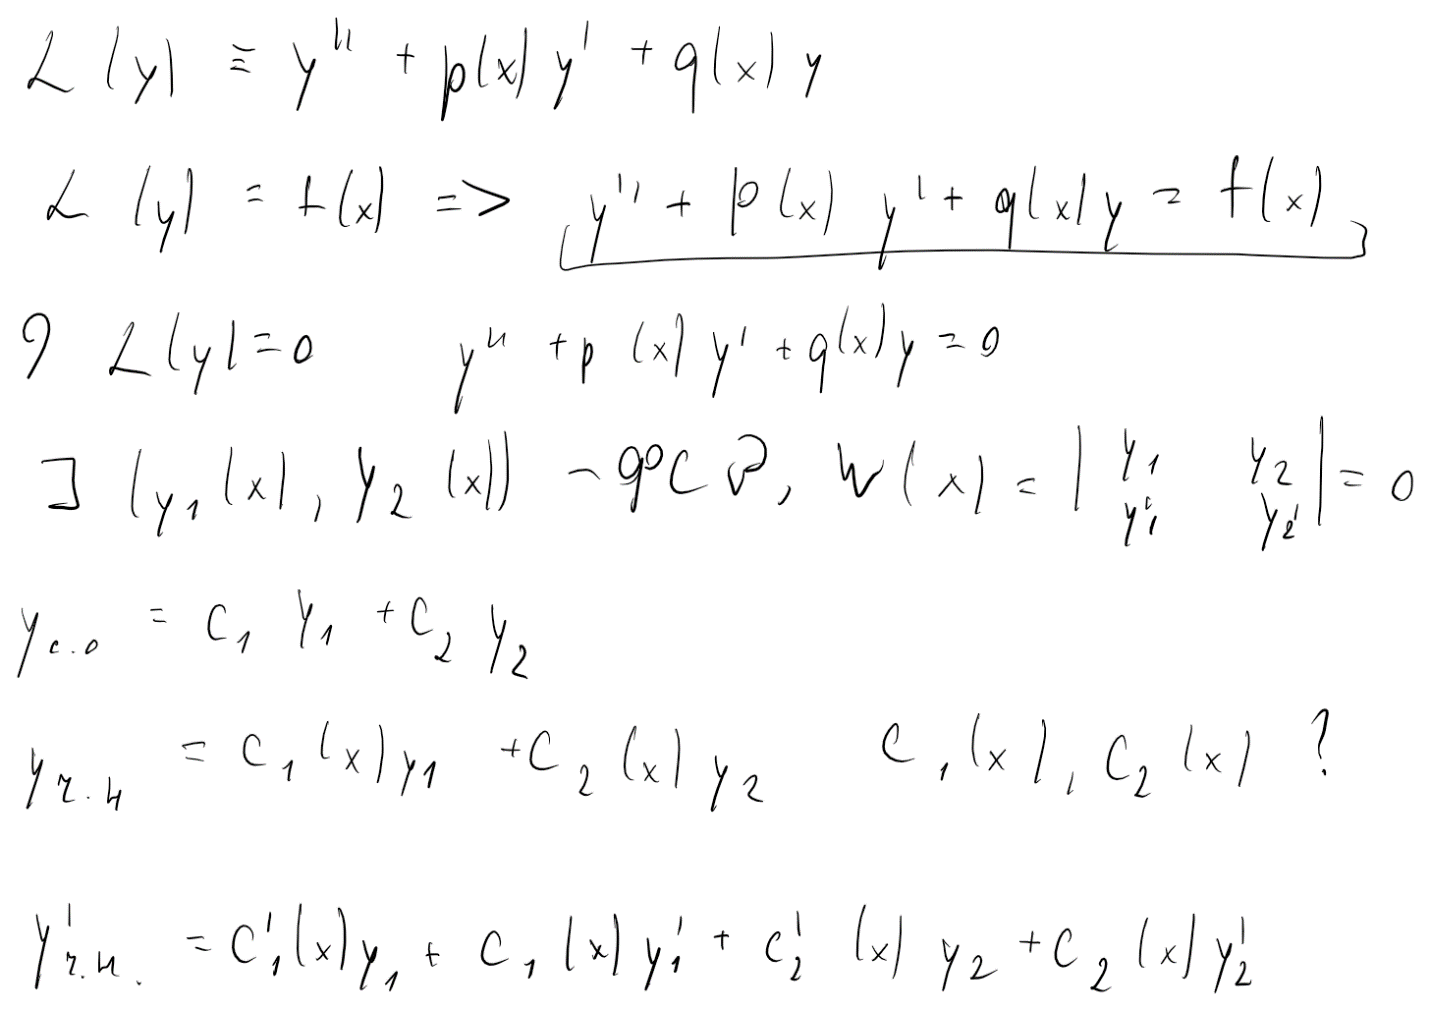 L(y) ≡ y'' + p(x) y' + q(x) y
L(y) = f(x) => y'' + p(x) y' + q(x) y = f(x)
Э L(y) = 0 y'' + p(x) y' + q(x) y = 0
] (y₁(x), y₂(x)) - ФСР, W(x) = | y₁ y₂ | = 0
y₁' y₂'
y с.о = C₁ y₁ + C₂ y₂
y ч.н = C₁(x) y₁ + C₂(x) y₂ C₁(x), C₂(x) ?
y' ч.н. = C₁'(x) y₁ + C₁(x) y₁' + C₂'(x) y₂ + C₂(x) y₂'